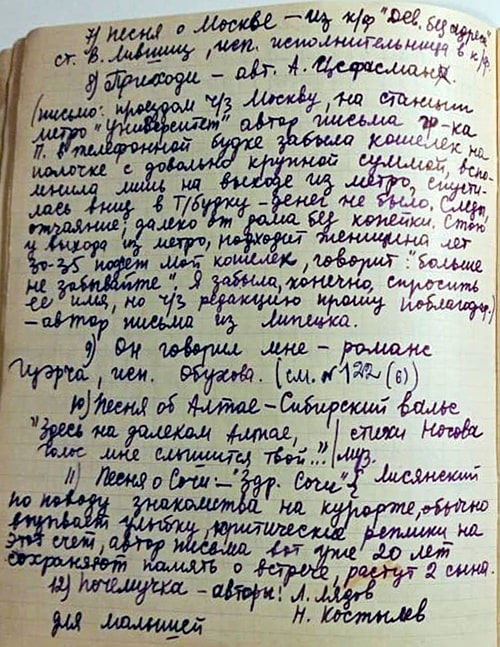 7) Песня о Москве – из к/ф "Дев. без адреса"
ст. В. Лившиц, исп. исполнительница в к/ф.
8) Приходи – авт. А. Цфасман
(письмо: проездом ч/з Москву, на станции
метро "Университет" автор письма гр-ка
П. в телефонной будке забыла кошелек на
полочке с довольно крупной суммой, вспо-
мнила лишь на выходе из метро, спусти-
лась вниз в т/будку – денег не было. Слезы,
отчаяние; далеко от дома без копейки. Стою
у выхода из метро, подходит женщина лет
30-35 подает мой кошелек, говорит: "больше
не забывайте". Я забыла, конечно, спросить
ее имя, но ч/з редакцию прошу поблагодар.)
– автор письма из Липецка.
9) Он говорил мне – романс
Гуэрча, исп. Обухова. (см. № 122 (6))
10) Песня об Алтае – Сибирский вальс
"Здесь на далеком Алтае, | стихи Носова
голос мне слышится твой..." | муз.
11) Песня о Сочи – "Здр. Сочи" { Лисянский
по поводу знакомства на курорте, обычно
вызывает улыбку, критические реплики на
этот счет, автор письма вот уже 20 лет
сохраняют память о встрече, растут 2 сына.
12) Почемучка – авторы: Л. Лядов
Н. Костылев
для малышей